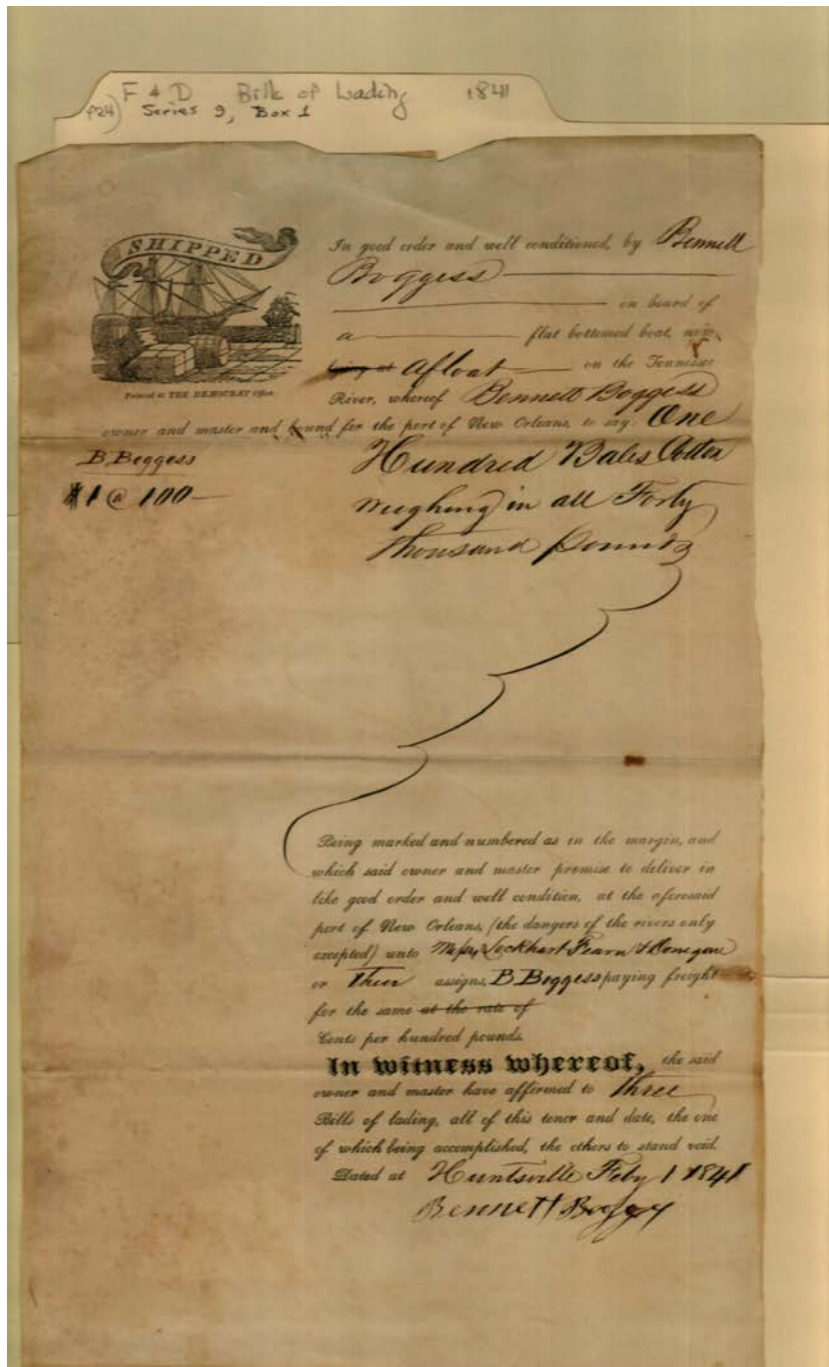 F & D Bills of Lading 1841
f24) Series 9, Box 1
SHIPPED
Printed at THE DEMOCRAT Office.
In good order and well conditioned, by Bennett
Boggess
on board of
a flat bottomed boat, now
lying at Afloat on the Tennessee
River, whereof Bennett Boggess
owner and master and bound for the port of New Orleans, to say One
B. Boggess
#1 @ 100
Hundred Bales Cotton
weighing in all Forty
Thousand Pounds
Being marked and numbered as in the margin, and
which said owner and master promise to deliver in
like good order and well condition, at the aforesaid
port of New Orleans, (the dangers of the rivers only
excepted) unto Messrs Lockhart Fearn & Donegan
or Their assigns, B Boggess paying freight
for the same at the rate of
Cents per hundred pounds.
In witness whereof, the said
owner and master have affirmed to Three
Bills of lading, all of this tenor and date, the one
of which being accomplished, the others to stand void.
Dated at Huntsville Feby 1 1841
Bennett Boggess